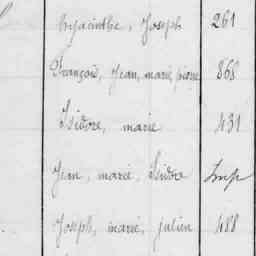 hyacinthe, Joseph 261
François, Jean, marie, pierre 868
Isidore, marie 431
Jean, marie, Isidore Imp
Joseph, marie, julien 488